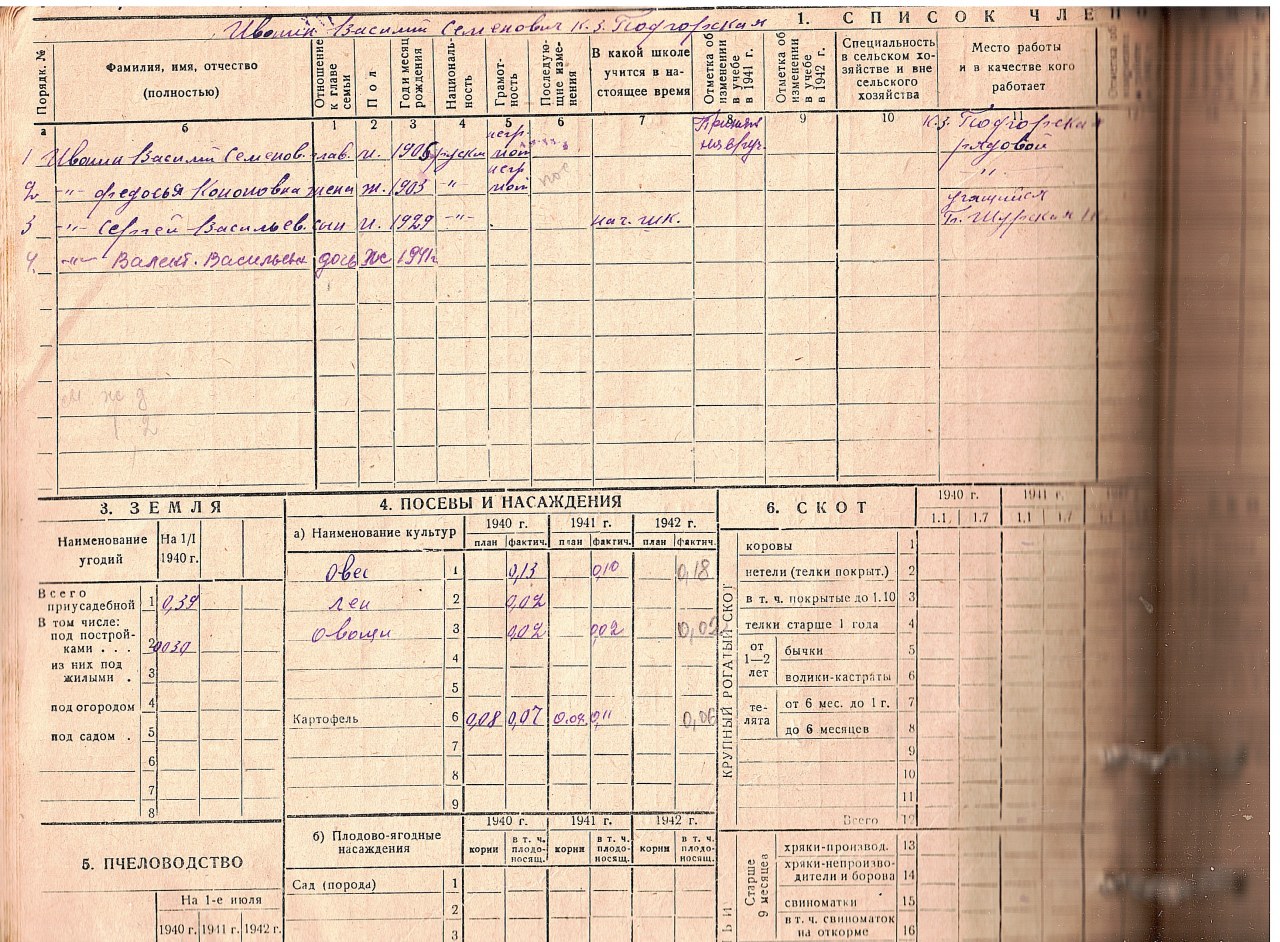 Ивошин Василий Семенович к-з. Подгорская
1. СПИСОК ЧЛЕНО
Порядк. №
Фамилия, имя, отчество (полностью)
Отношение к главе семьи
Пол
Год и месяц рождения
Националь-ность
Грамот-ность
Последую-щие изме-нения
В какой школе учится в на-стоящее время
Отметка об изменении в учебе в 1941 г.
Отметка об изменении в учебе в 1942 г.
Специальность в сельском хо-зяйстве и вне сельского хозяйства
Место работы и в качестве кого работает
а б 1 2 3 4 5 6 7 8 9 10 11
1 Василий Семенов. глав. м. 1906 русский негр-мот к-з. Подгорская рядовой
2 -"- Федосья Кононовна жена ж. 1903 -"- негр-мот -"-
3 -"- Сергей Васильев. сын м. 1929 -"- нач. шк. учащийся
4. -"- Валент. Васильевн дочь Же 1941г
м ж д
1 2
3. ЗЕМЛЯ
Наименование угодий
На 1/I 1940 г.
Всего приусадебной 1 0,39
В том числе:
под построй-ками . . . 2 0039
из них под жилыми . 3
под огородом 4
под садом . 5
6
7
8
5. ПЧЕЛОВОДСТВО
На 1-е июля
1940 г. 1941 г. 1942 г.
4. ПОСЕВЫ И НАСАЖДЕНИЯ
а) Наименование культур
1940 г. 1941 г. 1942 г.
план фактич. план фактич. план фактич.
Овес 1 0,13 0,10 0,18
лен 2 0,02
Овощи 3 0,02 0,02 0,02
4
5
Картофель 6 0,08 0,07 0.07. 0,11 0,06
7
8
9
б) Плодово-ягодные насаждения
1940 г. 1941 г. 1942 г.
корни в т. ч. плодо-носящ. корни в т. ч. плодо-носящ. корни в т. ч. плодо-носящ.
Сад (порода) 1
2
3
6. СКОТ
1940 г. 1941 г.
1.1. 1.7 1.1 1.7
КРУПНЫЙ РОГАТЫЙ СКОТ
коровы 1
нетели (телки покрыт.) 2
в т. ч. покрытые до 1.10 3
телки старше 1 года 4
от 1—2 лет
бычки 5
волики-кастраты 6
те-лята
от 6 мес. до 1 г. 7
до 6 месяцев 8
9
10
11
Всего 12
Старше 9 месяцев
хряки-производ. 13
хряки-непроизво-дители и борова 14
свиноматки 15
в т. ч. свиноматок на откорме 16